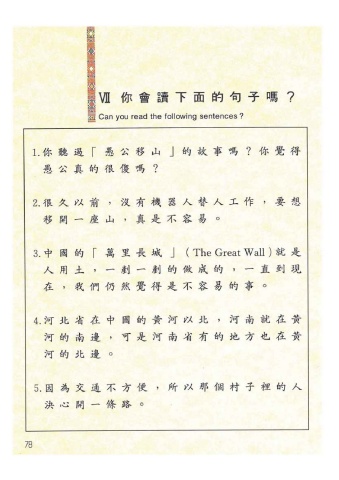 Ⅶ 你會讀下面的句子嗎？
Can you read the following sentences?
1.你聽過「愚公移山」的故事嗎？你覺得
愚公真的很傻嗎？
2.很久以前，沒有機器人替人工作，要想
移開一座山，真是不容易。
3.中國的「萬里長城」(The Great Wall)就是
人用土，一剷一剷的做成的，一直到現
在，我們仍然覺得是不容易的事。
4.河北省在中國的黃河以北，河南就在黃
河的南邊，可是河南省有的地方也在黃
河的北邊。
5.因為交通不方便，所以那個村子裡的人
決心開一條路。
78